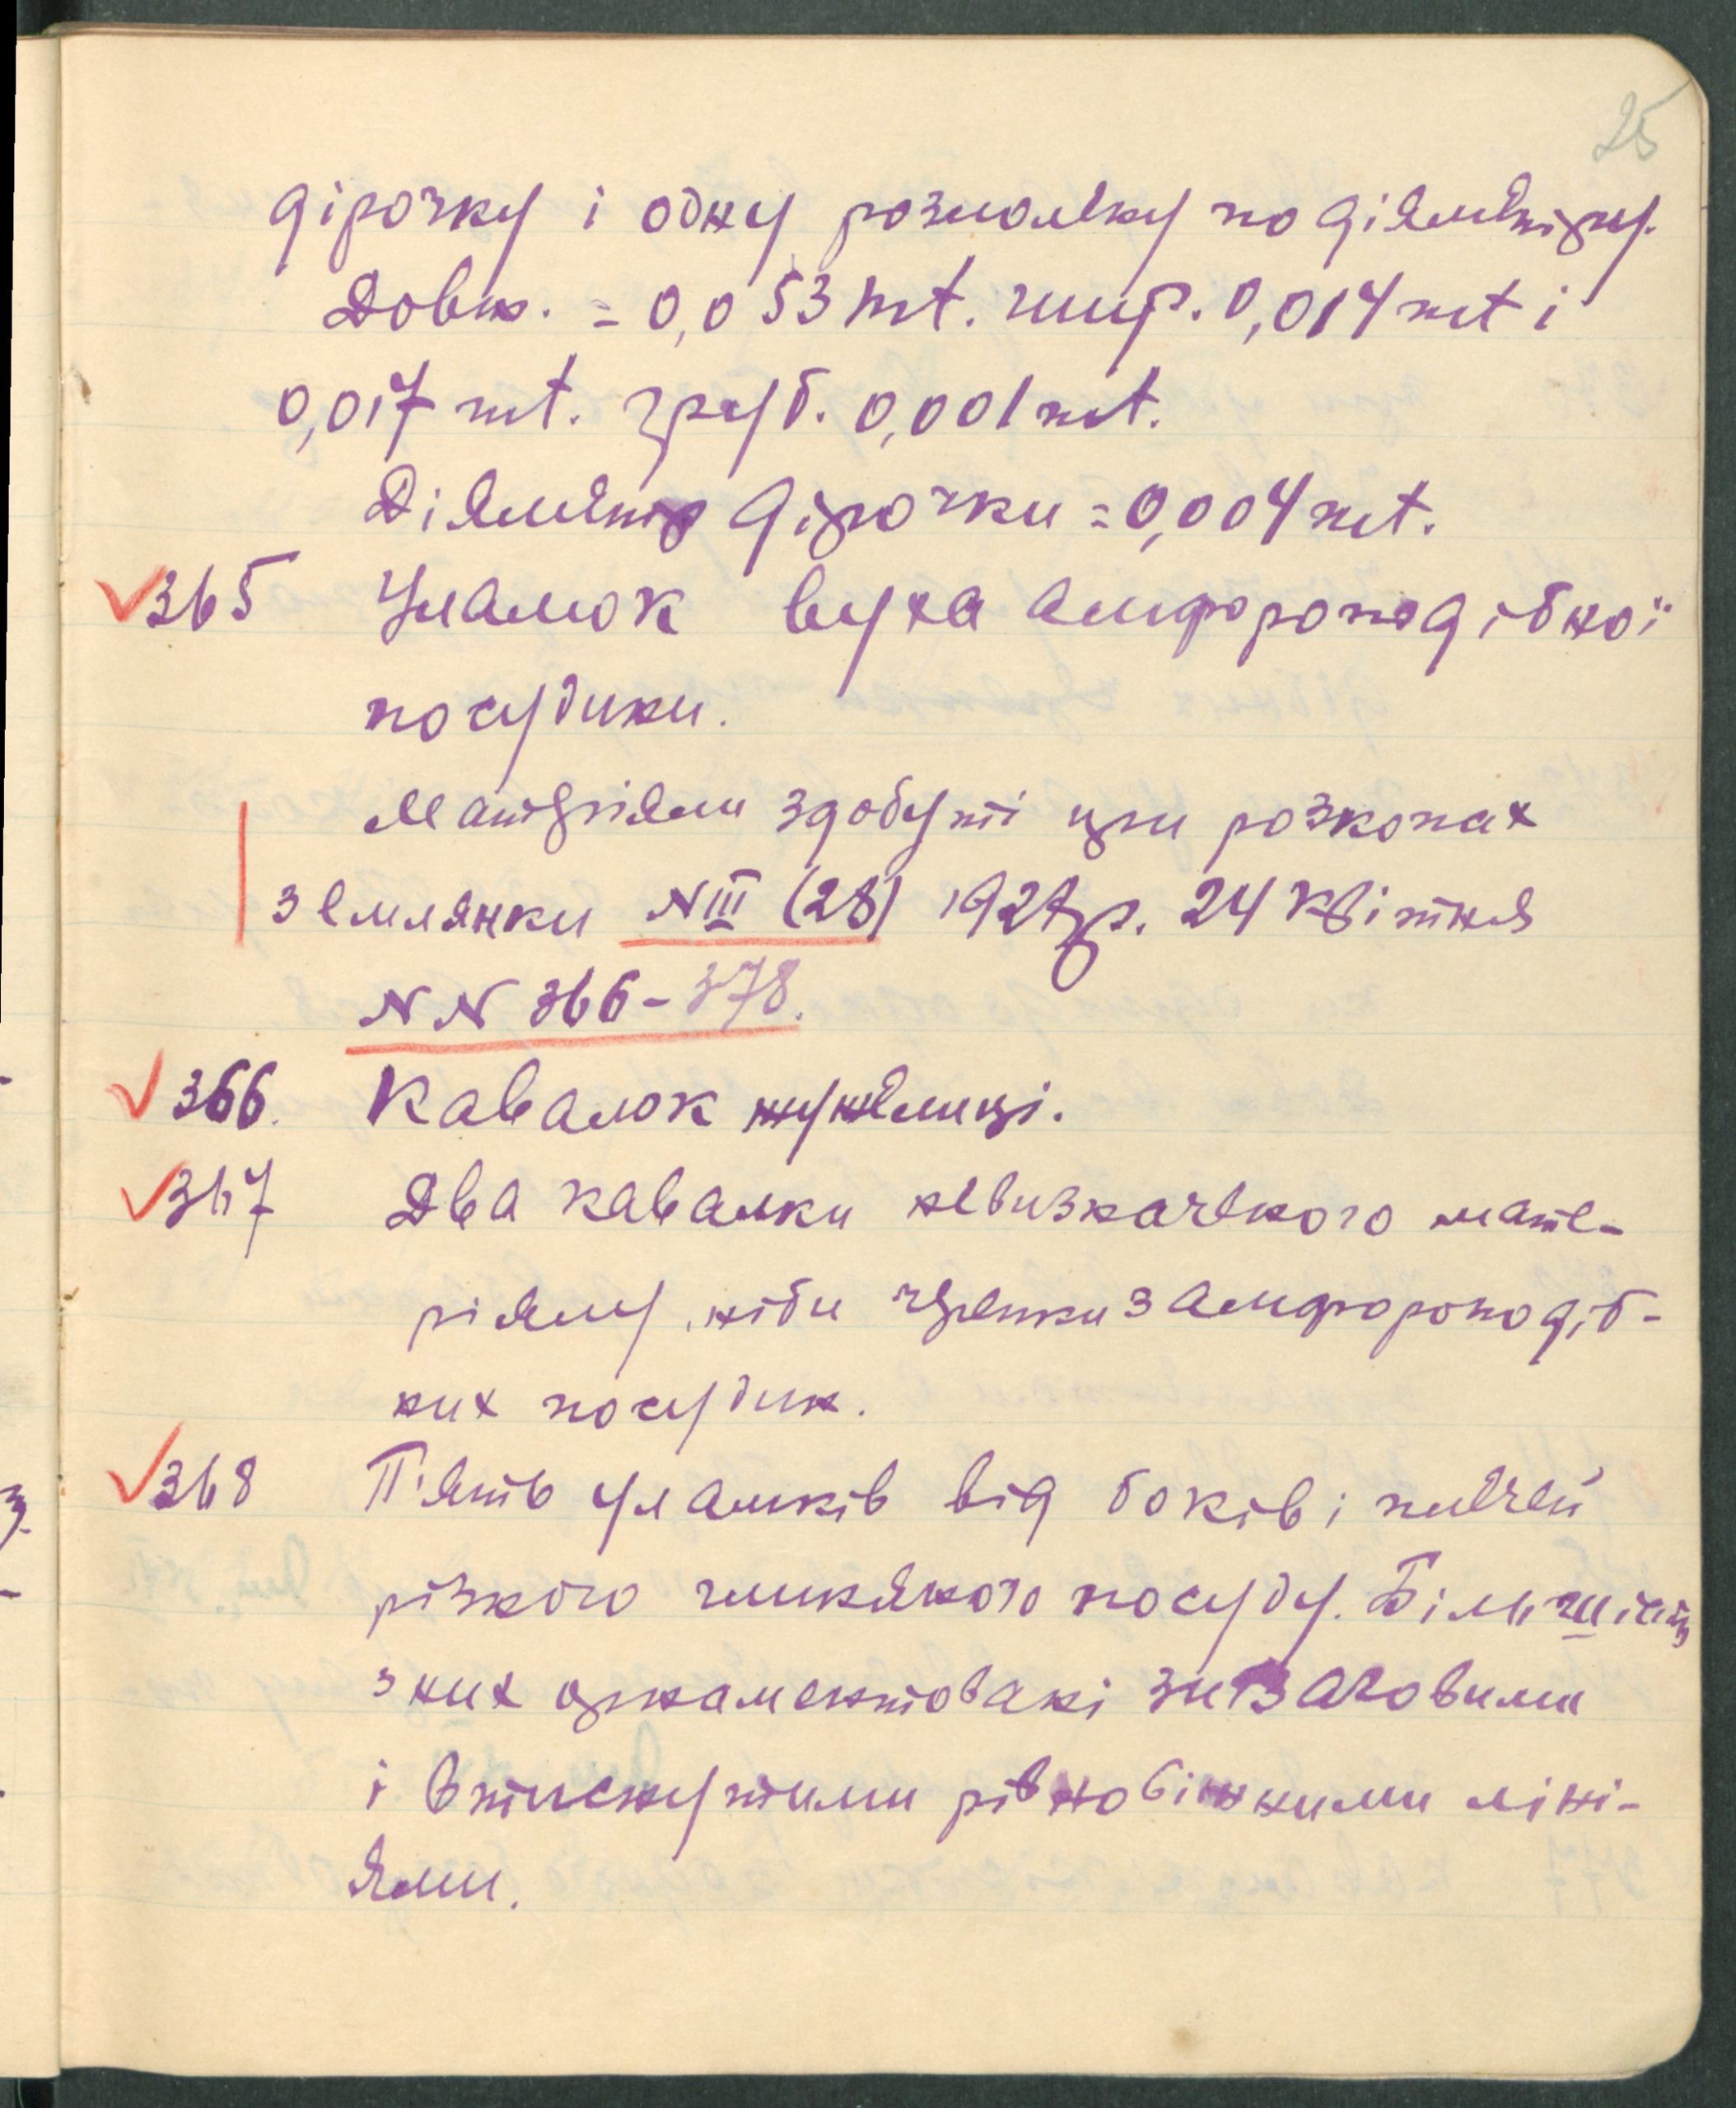 25
дірочку і одну розколену по діяметру.
Довж. = 0,053 mt. шир. 0,014 mt і
0,017 mt. груб. 0,001 mt.
Діяметр дірочки = 0,004 mt.
365 Уламок вуха амфороподібної
посудини.
Матеріяли здобуті при розкопах
землянки N III (28) р. 24 квітня
N N 366 – 378.
366. Кавалок жужелиці.
367 Два кавалки невизначеного мате-
ріялу, ніби черепки з амфороподіб-
них посудин.
368 П'ять уламків від боків і плечей
різного глиняного посуду. Більшість
з них орнаментовані зигзаговими
і втиснутими рівнобіжними ліні-
ями.